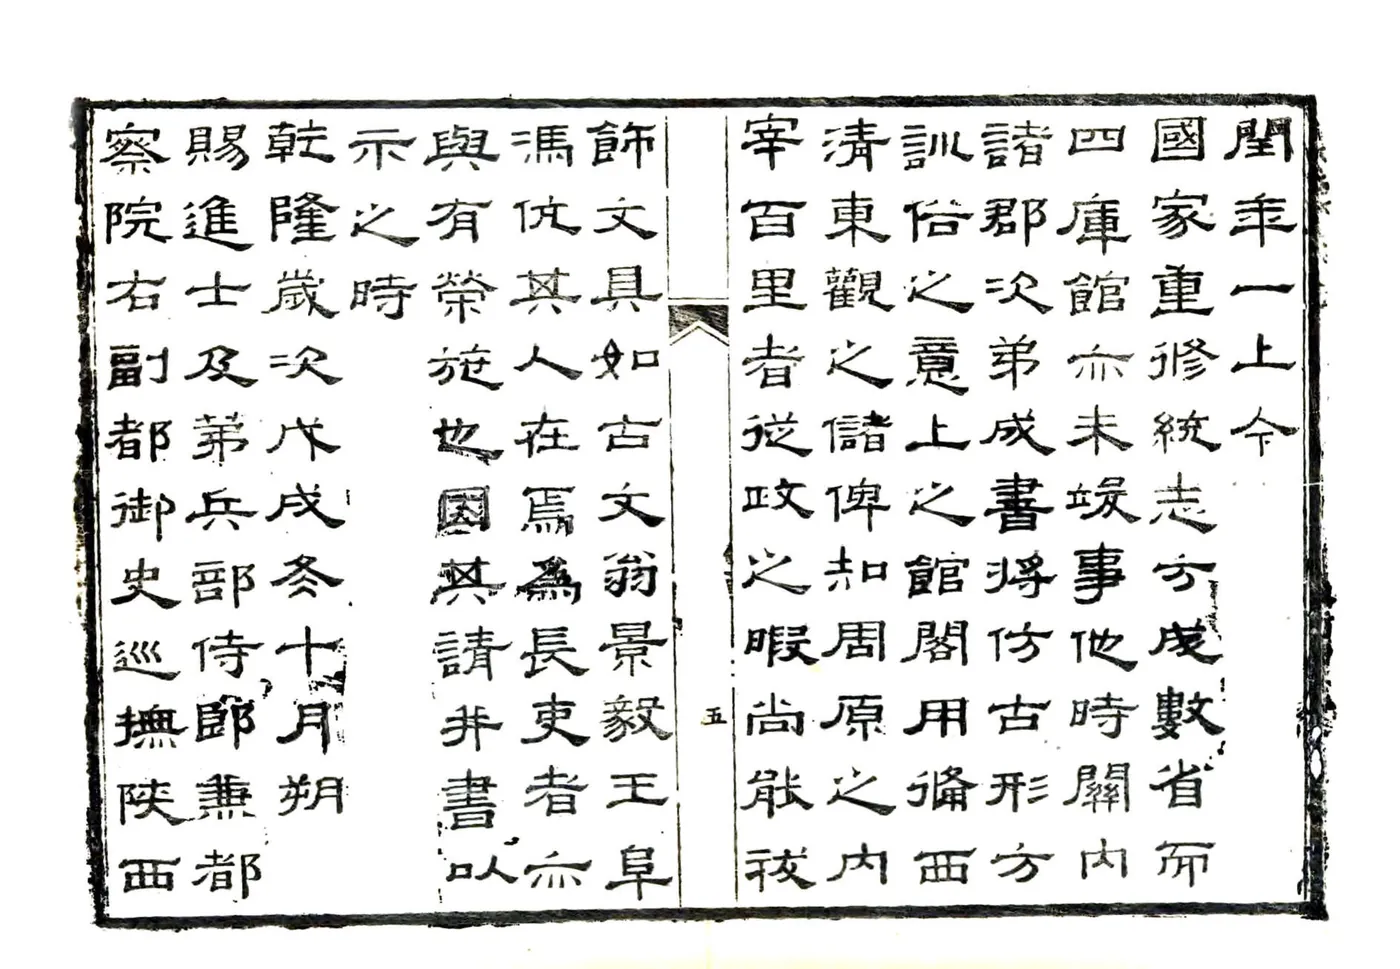 閏年一上今
國家重修統志方成數省而
四庫館亦未竣事他時關內
諸郡次弟成書將仿古形方
訓俗之意上之館閣用備西
清東觀之儲俾知周原之內
宰百里者從政之暇尚能袚
五
飾文具如古文翁景毅王阜
馮伉其人在焉為長吏者亦
與有榮施也因其請并書以
示之時
乾隆歲次戊戌冬十月朔
賜進士及弟兵部侍郎兼都
察院右副都御史巡撫陝西